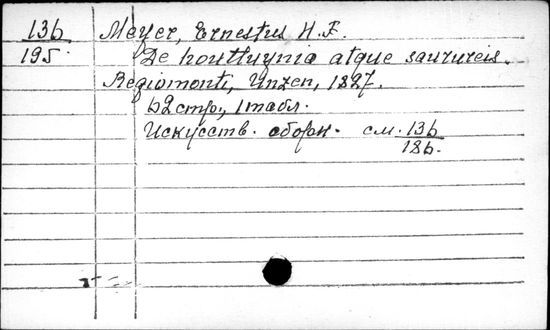 136 Meyer, Ernestus H. F.
195. De houttuynia atque saurureis.
Regiomonti, Unzen, 1827.
62 стр., 1 табл.
Искусств. сборн. см. 136
186.